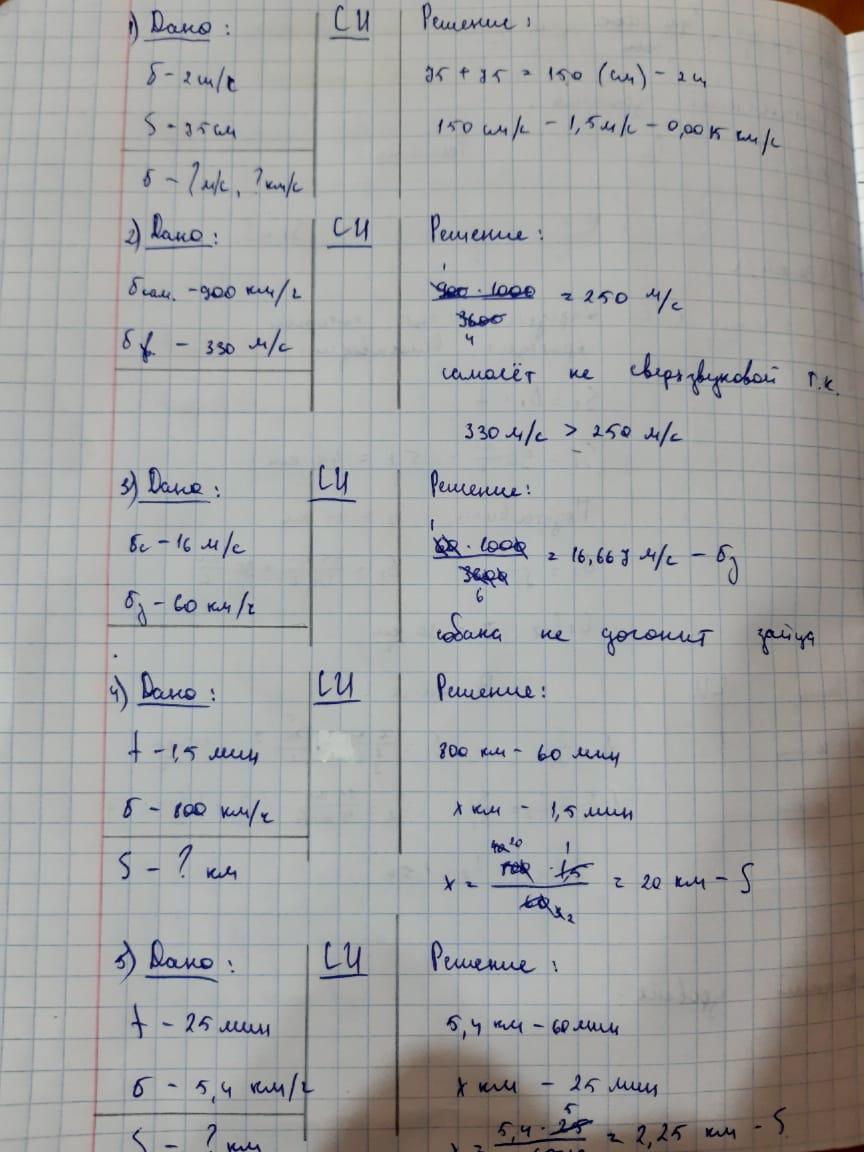 1) Дано: СИ Решение:
б - 2 ш/с 75 + 75 = 150 (см) - 2 ш
S - 75 см 150 см/с - 1,5 м/с - 0,0015 км/с
б - ? м/с, ? км/с
2) Дано: СИ Решение:
б сам. - 900 км/ч 900 · 1000 / 3600 = 250 м/с
1
4
б - 330 м/с
самолёт не сверхзвуковой т.к.
330 м/с > 250 м/с
3) Дано: СИ Решение:
бс - 16 м/с 60 · 1000 / 3600 = 16,667 м/с - бз
1
6
бз - 60 км/ч
собака не догонит зайца
4) Дано: СИ Решение:
t - 1,5 мин 800 км - 60 мин
б - 800 км/ч x км - 1,5 мин
S - ? км x = 800 · 1,5 / 60 = 20 км - S
5) Дано: СИ Решение:
t - 25 мин 5,4 км - 60 мин
б - 5,4 км/ч x км - 25 мин
5
S - ? км x = 5,4 · 25 = 2,25 км - S